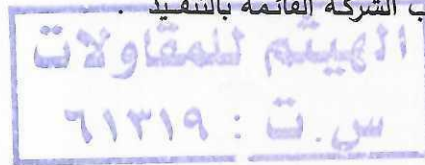 الشركة القائمة بالتنفيذ .
الهيثم للمقاولات
س.ت : ٦١٣١٩